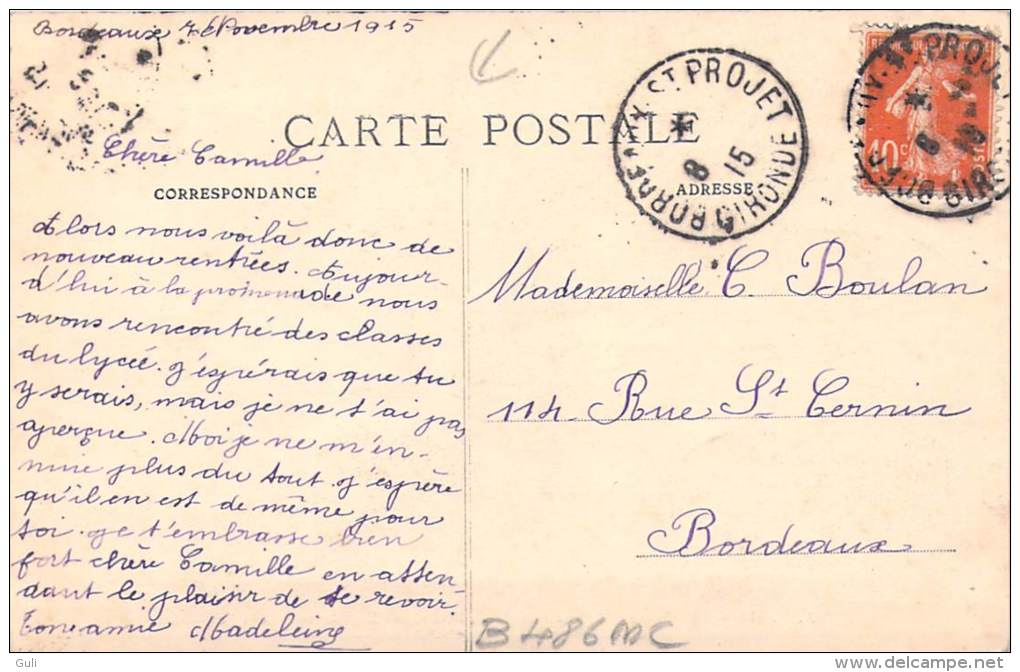 Bordeaux 7 Novembre 1915
CARTE POSTALE
Chère Camille
CORRESPONDANCE
Alors nous voilà donc de
nouveau rentrées. Aujour-
d'hui à la promenade nous
avons rencontré des classes
du lycée. J'espérais que tu
y serais, mais je ne t'ai pas
aperçue. Moi je ne m'en-
nuie plus du tout. J'espère
qu'il en est de même pour
toi. Je t'embrasse bien
fort chère Camille en atten
dant le plaisir de te revoir.
Ton amie Madeleine
ST PROJET
8 15
GIRONDE
ADRESSE
10c
ST PROJET
8
Mademoiselle C. Boulan
114 Rue St Cernin
Bordeaux
B486MC
Guli
delcampe.net